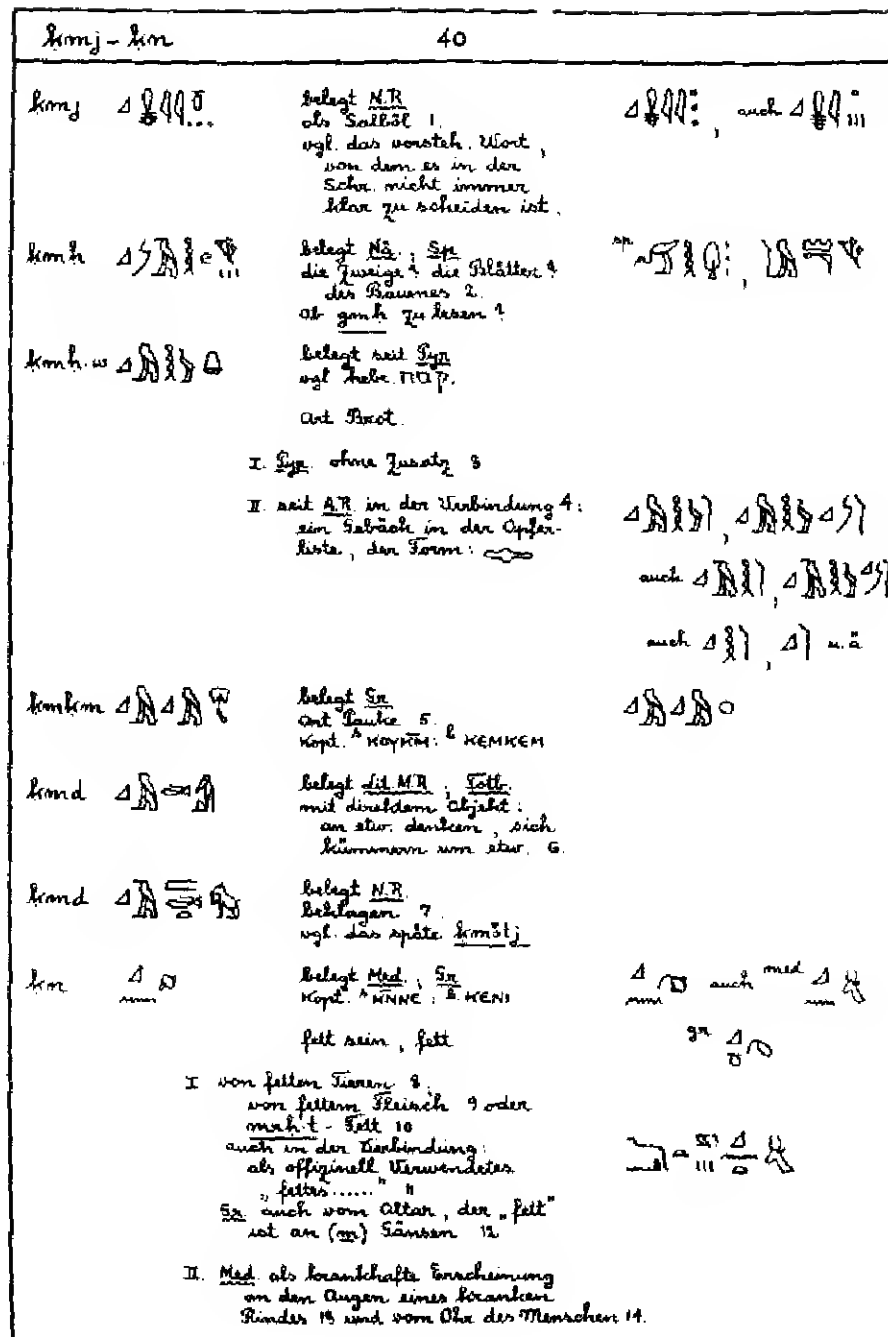 ḳmj - ḳn 40
ḳmj belegt N.R.
als Salböl 1. auch
vgl. das vorsteh. Wort,
von dem es in der
Schr. nicht immer
klar zu scheiden ist.
ḳmḥ belegt Nä.; Sp. sp.
die Zweige? die Blätter?
des Baumes 2.
ob gmḥ zu lesen?
ḳmḥ.w belegt seit Pyr.
vgl. hebr. קמח.
Art Brot.
I. Pyr. ohne Zusatz 3
II. seit A.R. in der Verbindung 4:
ein Gebäck in der Opfer-
liste, der Form:
auch
auch u.ä.
ḳmḳm belegt Gr.
Art Pauke 5.
Kopt. S ⲔⲞⲨⲔⲘ̄: B ⲔⲈⲘⲔⲈⲘ
ḳmd belegt Lit. M.R.; Totb.
mit direktem Objekt:
an etw. denken, sich
kümmern um etw. 6.
ḳmd belegt N.R.
beklagen 7.
vgl. das späte
ḳn belegt Med.; Gr. auch med.
Kopt. S ⲔⲚ̄ⲚⲈ: B ⲔⲈⲚⲒ
fett sein, fett gr.
I von fetten Tieren 8.
von fettem Fleisch 9 oder
mrḥ.t - Fett 10
auch in der Verbindung:
als offizinell Verwendetes
„fettes......" 11
Gr. auch vom Altar, der „fett"
ist an (m) Gänsen 12
II. Med. als krankhafte Erscheinung
an den Augen eines kranken
Rindes 13 und vom Ohr des Menschen 14.